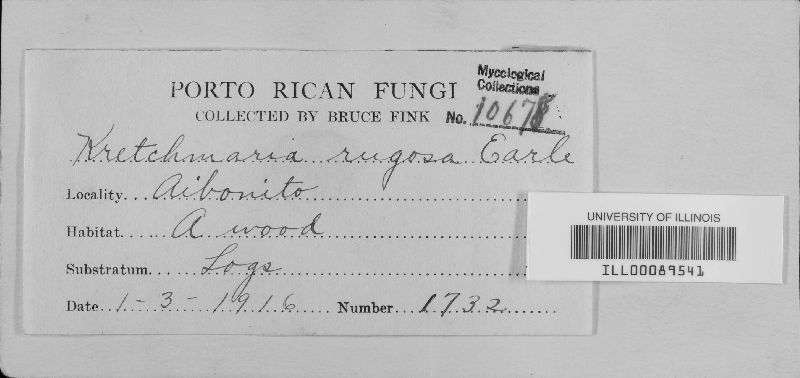 PORTO RICAN FUNGI
Mycological
Collections
COLLECTED BY BRUCE FINK No.
Kretchmaria rugosa Earle
Locality... Aibonito
Habitat... A wood
Substratum... Logs
Date.. 1-3-1916 Number... 1732
UNIVERSITY OF ILLINOIS
ILL00089541